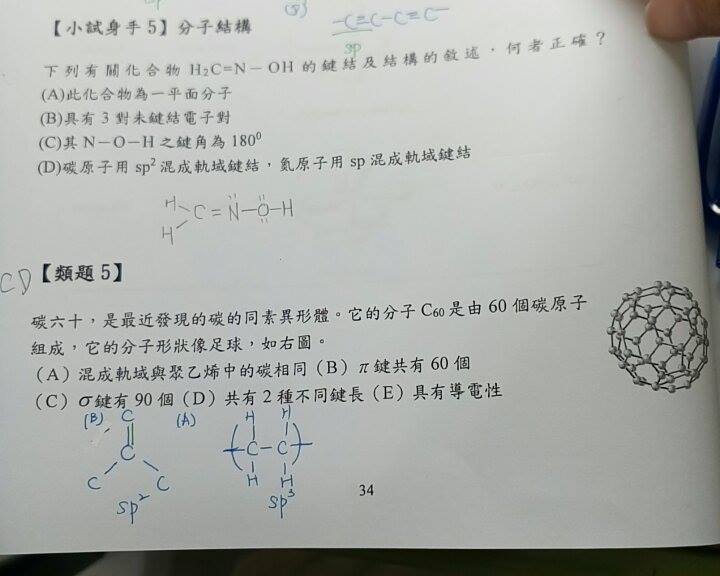 (5)
-C≡C-C≡C-
sp
【小試身手 5】分子結構
下列有關化合物 H₂C=N－OH 的鍵結及結構的敘述，何者正確？
(A)此化合物為一平面分子
(B)具有 3 對未鍵結電子對
(C)其 N－O－H 之鍵角為 180⁰
(D)碳原子用 sp² 混成軌域鍵結，氮原子用 sp 混成軌域鍵結
H
C=N-O-H
H
CD【類題 5】
碳六十，是最近發現的碳的同素異形體。它的分子 C₆₀ 是由 60 個碳原子
組成，它的分子形狀像足球，如右圖。
（A）混成軌域與聚乙烯中的碳相同（B）π 鍵共有 60 個
（C）σ鍵有 90 個（D）共有 2 種不同鍵長（E）具有導電性
(B) C (A) H H
C C-C
C C H H
sp² sp³
34